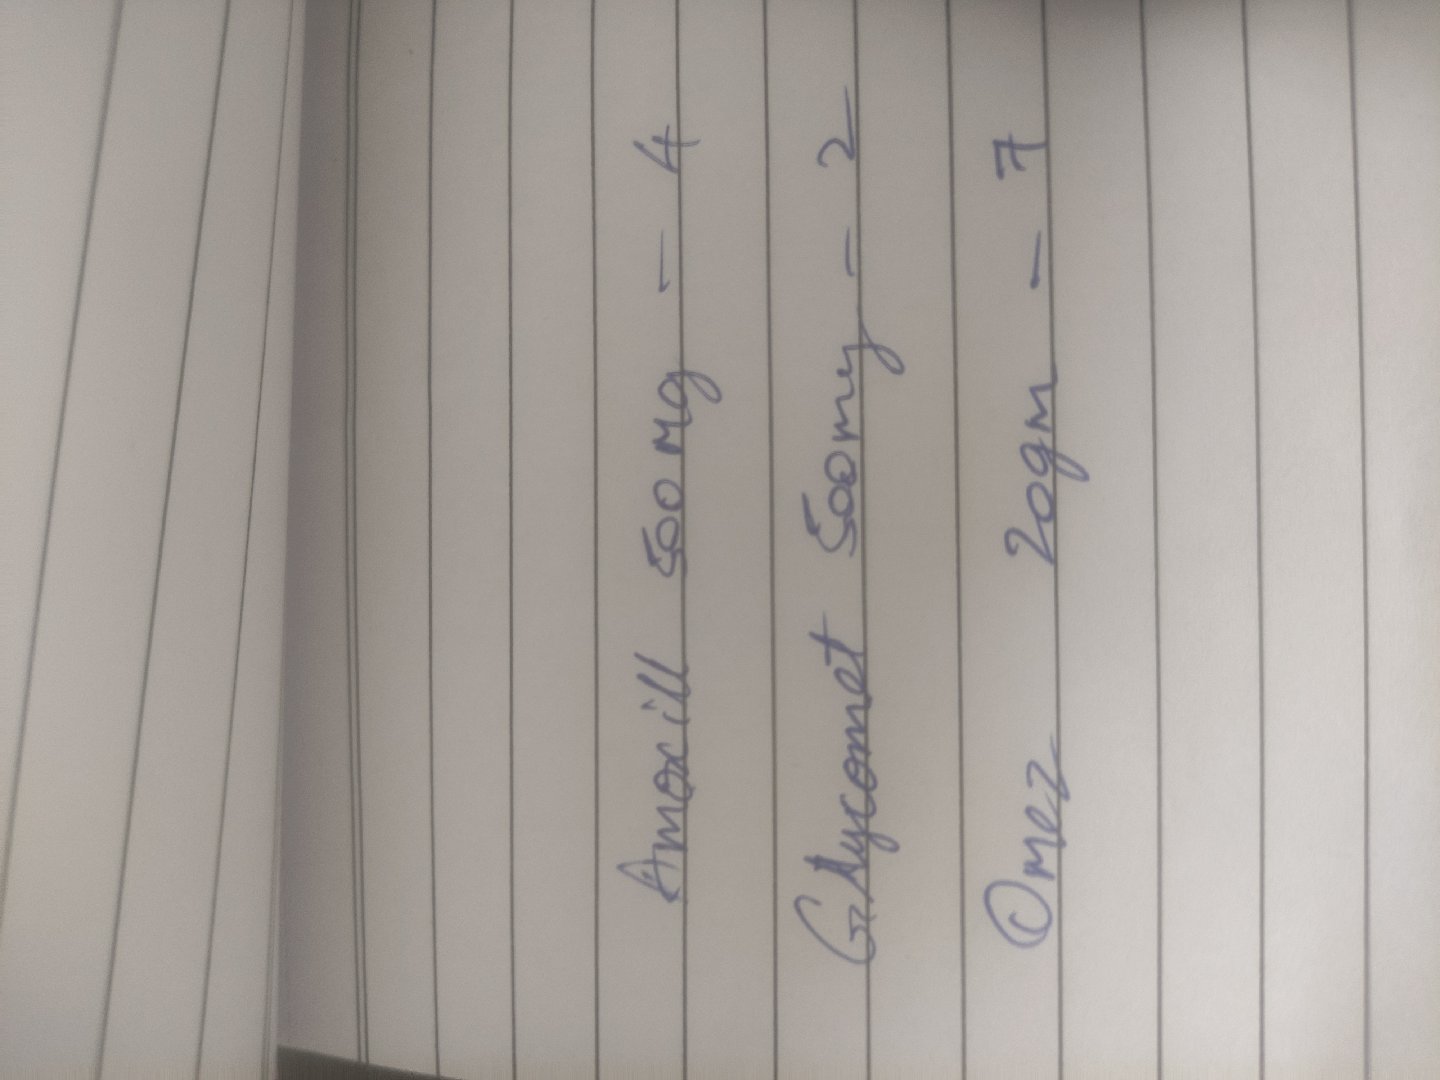 Amoxcill 500 mg - 4
Glycomet 500mg - 2
Omez 20gm - 7